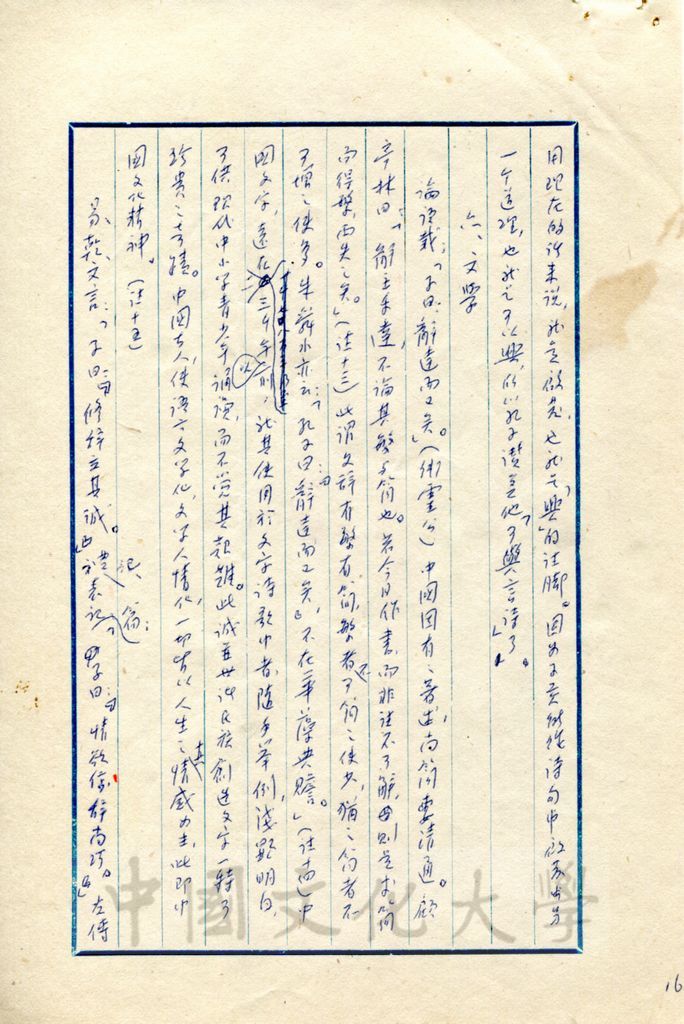 用現在的話來說,就是啟發,也就是「興」的註腳。因為子貢能從詩句中啟發出另
一個道理,也就是可以興,所以孔子讚美他「可與言詩了」。
六、文學
論語載:「子曰:辭達而已矣。」(衛靈公)中國固有之著述,尚簡要清通。顧
亭林曰:「辭主乎達,不論其繁與簡也。若今日作書,而非註不可解,則是求簡
而得繁,兩失之矣。」(註十三)此謂文辭有繁有簡,繁者不可簡之使少,猶之簡者不
可增之使多。朱舜水亦云:「孔子曰:『辭達而已矣』,不在華藻典贍。」(註十四)中
國文字,遠在三千年以前,就其使用於文字詩歌中者,隨手舉例,淺顯明白,
可供現代中小學青少年誦讀,而不覺其艱難。此誠並世諸民族創造文字一特可
珍貴之奇蹟。中國古人,使語言文學化,文學人情化,一切皆以人生之真情感為主,此即中
國文化精神。(註十五)
易、乾、文言:「子曰:『修辭立其誠。』」禮記、表記篇:「子曰:『情欲信,辭尚巧。』」左傳
16
中國文化大學